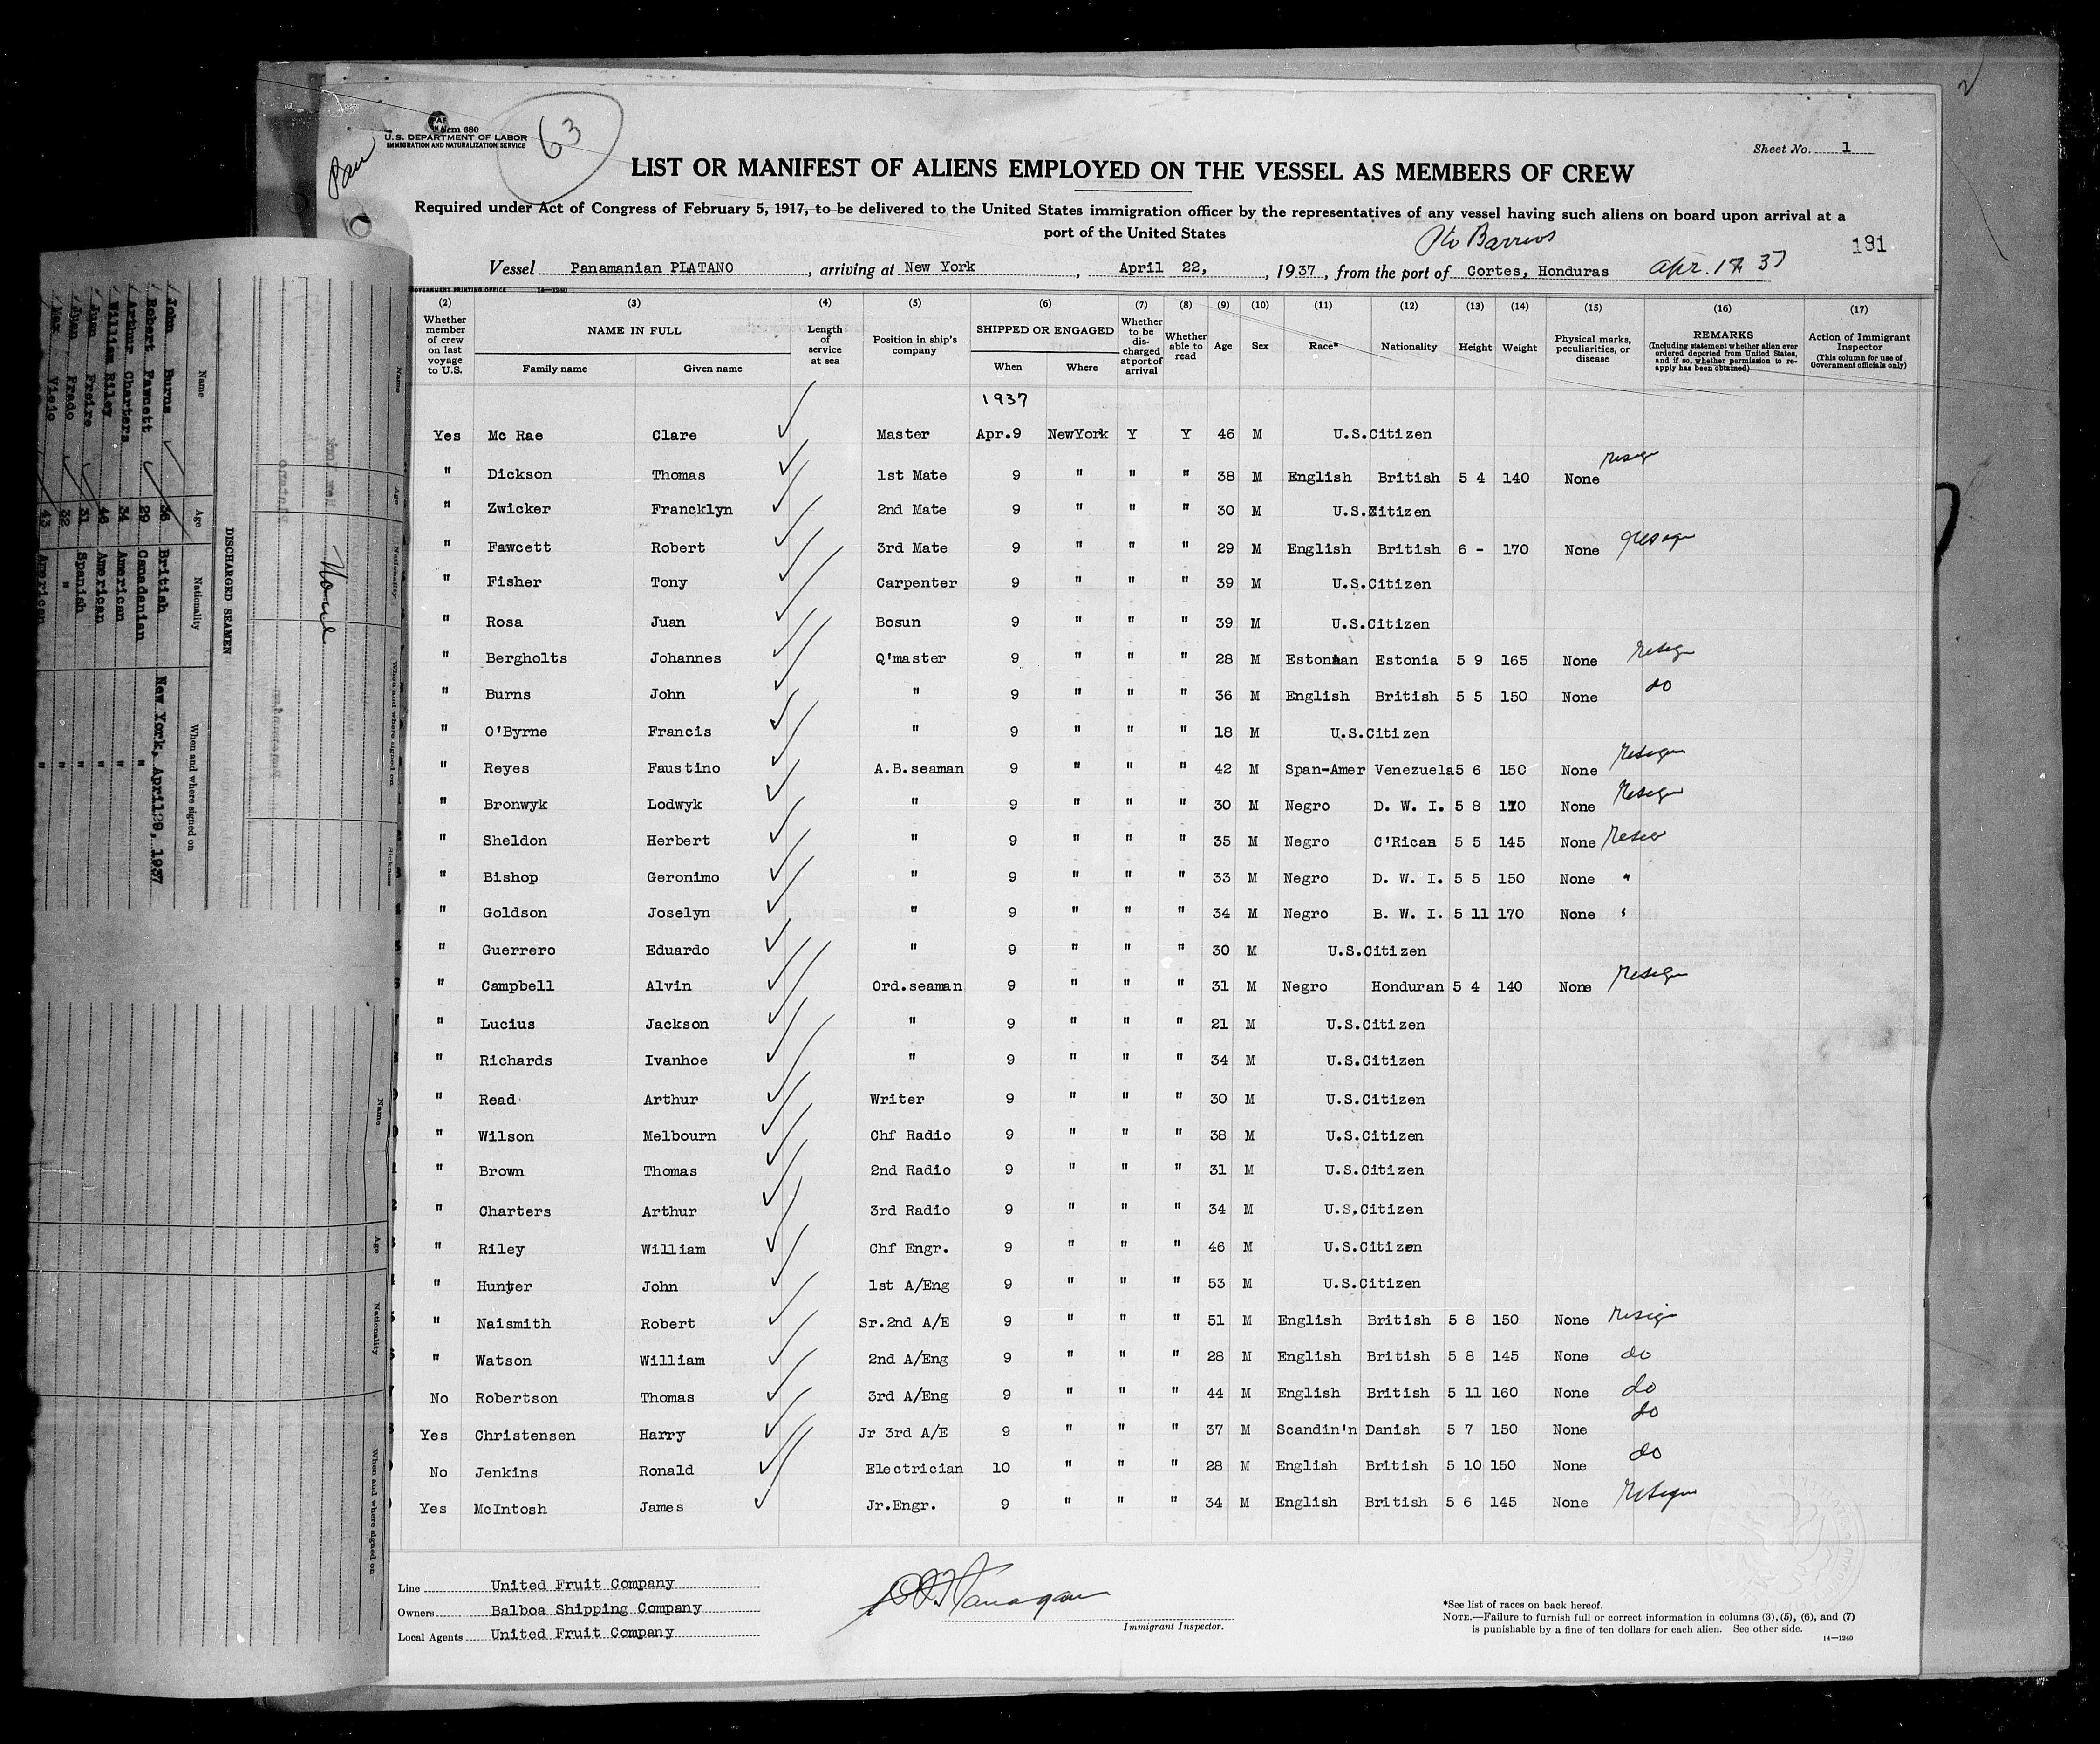 Form 680
U.S. DEPARTMENT OF LABOR
IMMIGRATION AND NATURALIZATION SERVICE
63
Sheet No. 1
LIST OR MANIFEST OF ALIENS EMPLOYED ON THE VESSEL AS MEMBERS OF CREW
Required under Act of Congress of February 5, 1917, to be delivered to the United States immigration officer by the representatives of any vessel having such aliens on board upon arrival at a
port of the United States
Pto Barrios
191
Vessel Panamanian PLATANO, arriving at New York, April 22, 1937, from the port of Cortes, Honduras Apr. 17 37
GOVERNMENT PRINTING OFFICE 14—1240
(2) (3) (4) (5) (6) (7) (8) (9) (10) (11) (12) (13) (14) (15) (16) (17)
Whether member of crew on last voyage to U.S. NAME IN FULL Family name Given name Length of service at sea Position in ship's company SHIPPED OR ENGAGED When Where Whether to be discharged at port of arrival Whether able to read Age Sex Race* Nationality Height Weight Physical marks, peculiarities, or disease REMARKS (Including statement whether alien ever ordered deported from United States, and if so, whether permission to reapply has been obtained) Action of Immigrant Inspector (This column for use of Government officials only)
1937
Yes Mc Rae Clare Master Apr.9 NewYork Y Y 46 M U.S.Citizen
" Dickson Thomas 1st Mate 9 " " " 38 M English British 5 4 140 None resign
" Zwicker Francklyn 2nd Mate 9 " " " 30 M U.S.Citizen
" Fawcett Robert 3rd Mate 9 " " " 29 M English British 6 - 170 None resign
" Fisher Tony Carpenter 9 " " " 39 M U.S.Citizen
" Rosa Juan Bosun 9 " " " 39 M U.S.Citizen
" Bergholts Johannes Q'master 9 " " " 28 M Estonian Estonia 5 9 165 None resign
" Burns John " 9 " " " 36 M English British 5 5 150 None do
" O'Byrne Francis " 9 " " " 18 M U.S.Citizen
" Reyes Faustino A.B.seaman 9 " " " 42 M Span-Amer Venezuela 5 6 150 None resign
" Bronwyk Lodwyk " 9 " " " 30 M Negro D. W. I. 5 8 170 None resign
" Sheldon Herbert " 9 " " " 35 M Negro C'Rican 5 5 145 None resign
" Bishop Geronimo " 9 " " " 33 M Negro D. W. I. 5 5 150 None "
" Goldson Joselyn " 9 " " " 34 M Negro B. W. I. 5 11 170 None "
" Guerrero Eduardo " 9 " " " 30 M U.S.Citizen
" Campbell Alvin Ord.seaman 9 " " " 31 M Negro Honduran 5 4 140 None resign
" Lucius Jackson " 9 " " " 21 M U.S.Citizen
" Richards Ivanhoe " 9 " " " 34 M U.S.Citizen
" Read Arthur Writer 9 " " " 30 M U.S.Citizen
" Wilson Melbourn Chf Radio 9 " " " 38 M U.S.Citizen
" Brown Thomas 2nd Radio 9 " " " 31 M U.S.Citizen
" Charters Arthur 3rd Radio 9 " " " 34 M U.S.Citizen
" Riley William Chf Engr. 9 " " " 46 M U.S.Citizen
" Hunter John 1st A/Eng 9 " " " 53 M U.S.Citizen
" Naismith Robert Sr.2nd A/E 9 " " " 51 M English British 5 8 150 None resign
" Watson William 2nd A/Eng 9 " " " 28 M English British 5 8 145 None do
No Robertson Thomas 3rd A/Eng 9 " " " 44 M English British 5 11 160 None do
Yes Christensen Harry Jr 3rd A/E 9 " " " 37 M Scandin'n Danish 5 7 150 None do
No Jenkins Ronald Electrician 10 " " " 28 M English British 5 10 150 None do
Yes McIntosh James Jr.Engr. 9 " " " 34 M English British 5 6 145 None resign
Line United Fruit Company
Owners Balboa Shipping Company
Local Agents United Fruit Company
Immigrant Inspector.
*See list of races on back hereof.
NOTE.—Failure to furnish full or correct information in columns (3), (5), (6), and (7)
is punishable by a fine of ten dollars for each alien. See other side.
14—1240
DISCHARGED SEAMEN
Name Age Nationality When and where signed on
John Burns 36 British New York, April 29, 1937
Robert Fawcett 29 Canadanian "
Arthur Charters 34 American "
William Riley 46 American "
Juan Freire 31 Spanish "
Juan Prado 32 " "
Max Viejo 43 American "
None
Name Age Nationality When and where signed on Sickness
Name Age Nationality When and where signed on